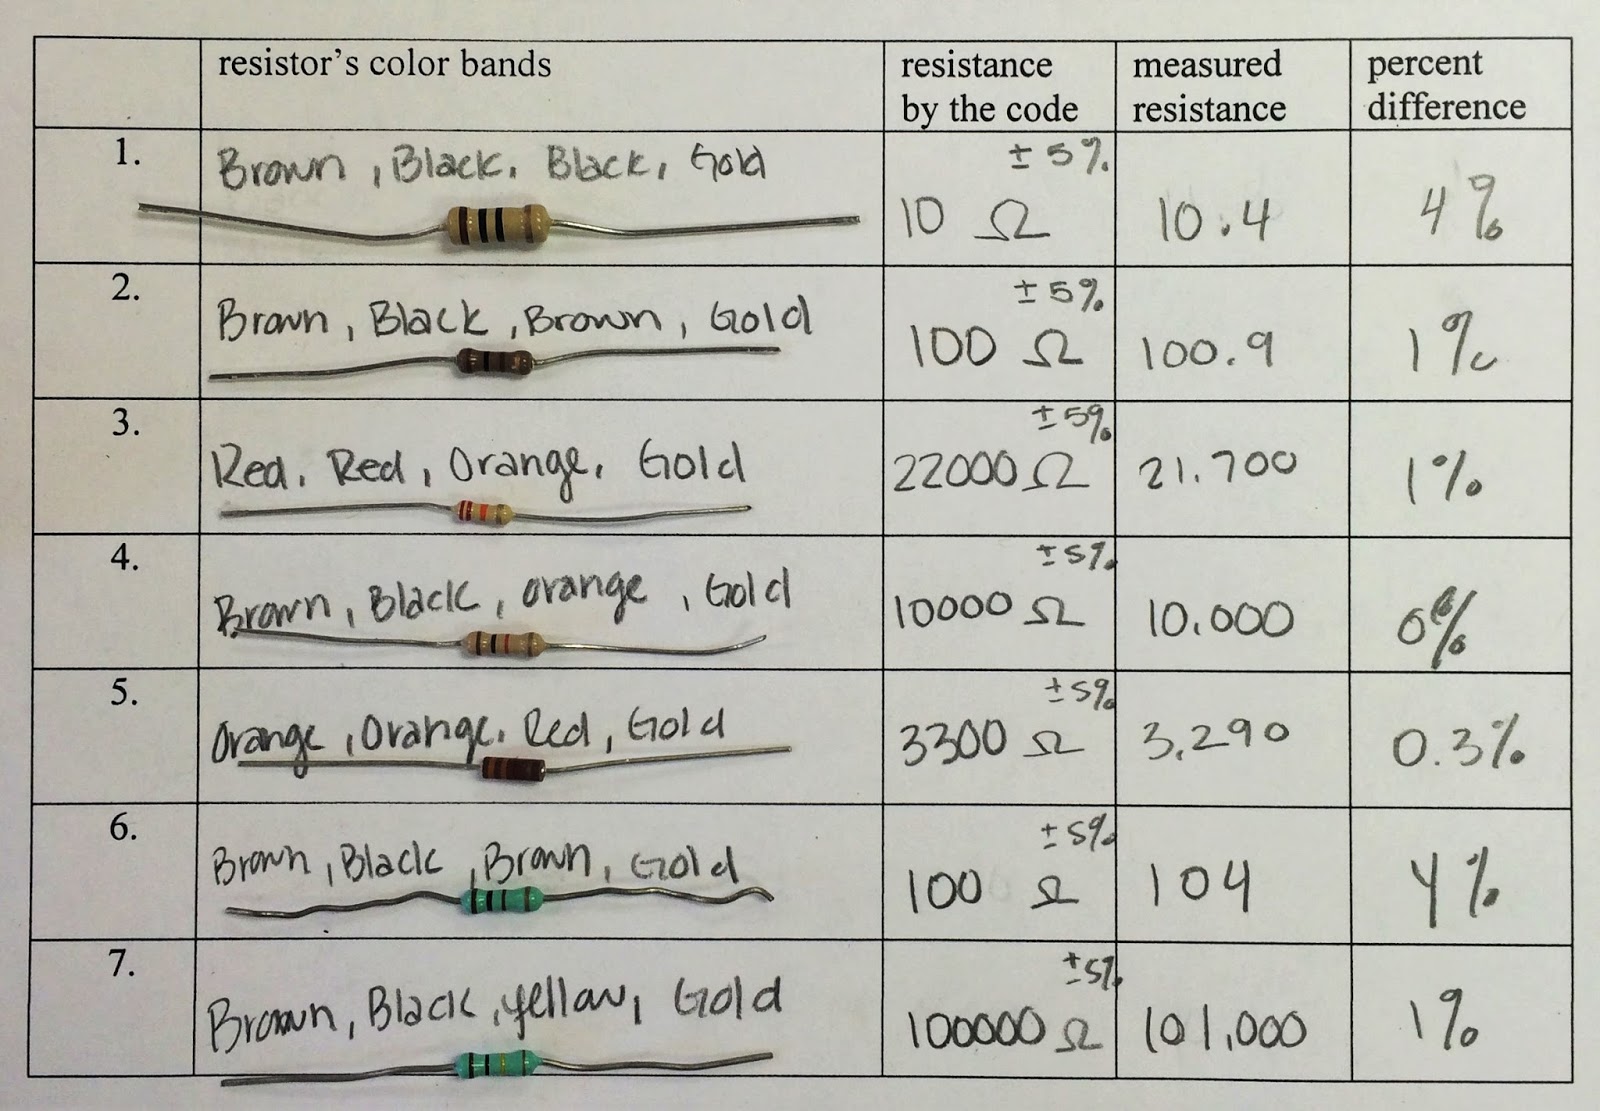 resistor's color bands
resistance by the code
measured resistance
percent difference
1.
Brown, Black, Black, Gold
± 5%
10 Ω
10.4
4%
2.
Brown, Black, Brown, Gold
± 5%
100 Ω
100.9
1%
3.
Red, Red, Orange, Gold
± 5%
22000 Ω
21.700
1%
4.
Brown, Black, orange, Gold
± 5%
10000 Ω
10.000
0%
5.
Orange, Orange, Red, Gold
± 5%
3300 Ω
3,290
0.3%
6.
Brown, Black, Brown, Gold
± 5%
100 Ω
104
4%
7.
Brown, Black, yellow, Gold
± 5%
100000 Ω
101,000
1%